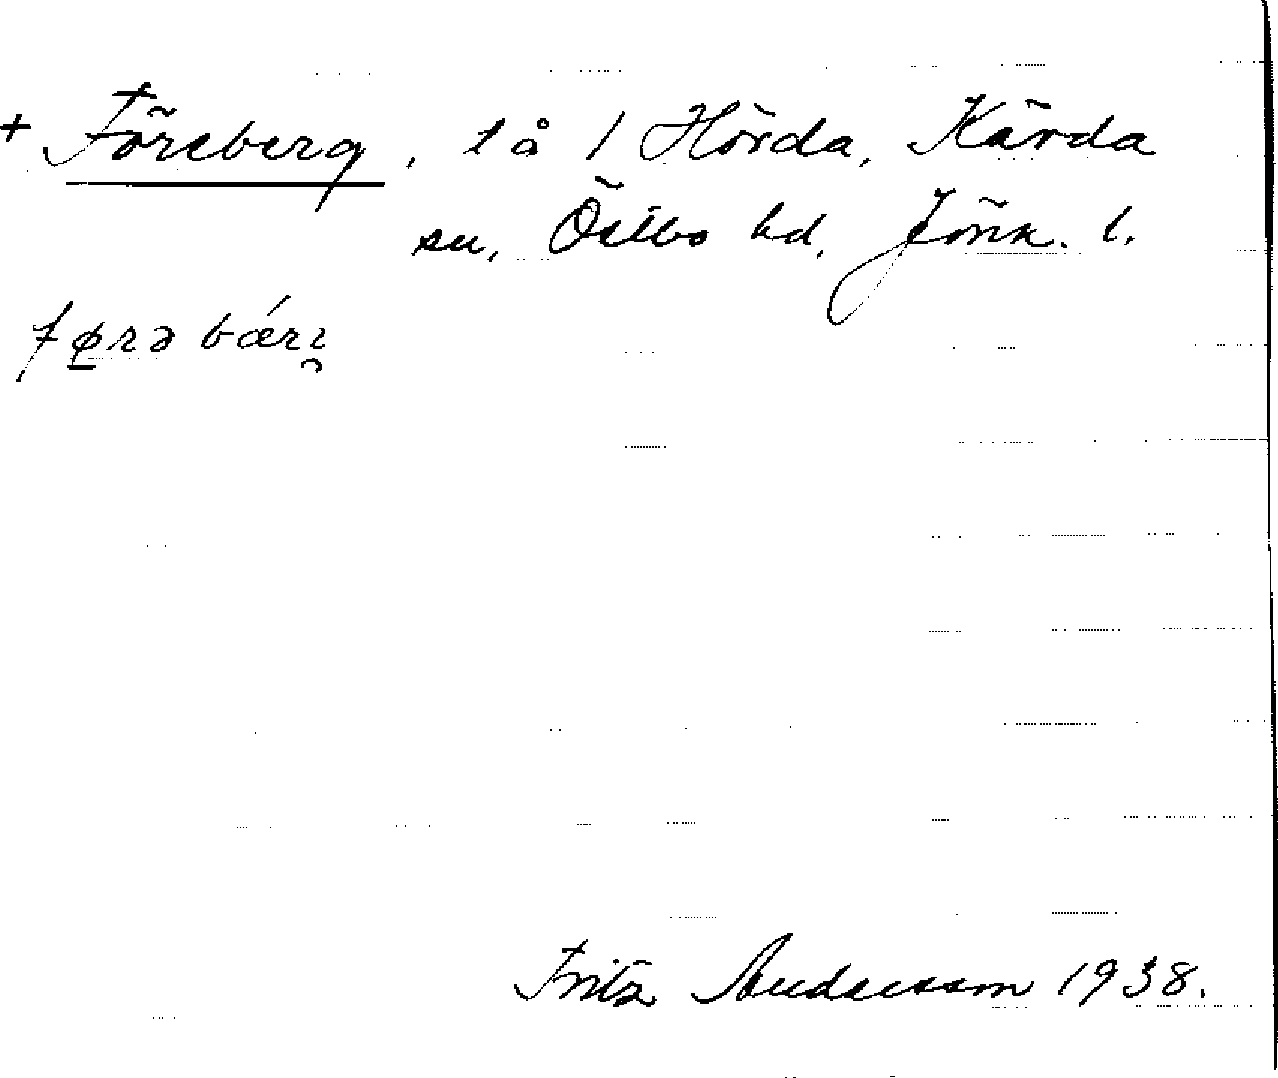 + Föreberg, lå / Hörda, Kärda
sn, Östbo hd, Jönk. l.
fø̱rə bǽrɪ̯
Fritz Andersson 1938.